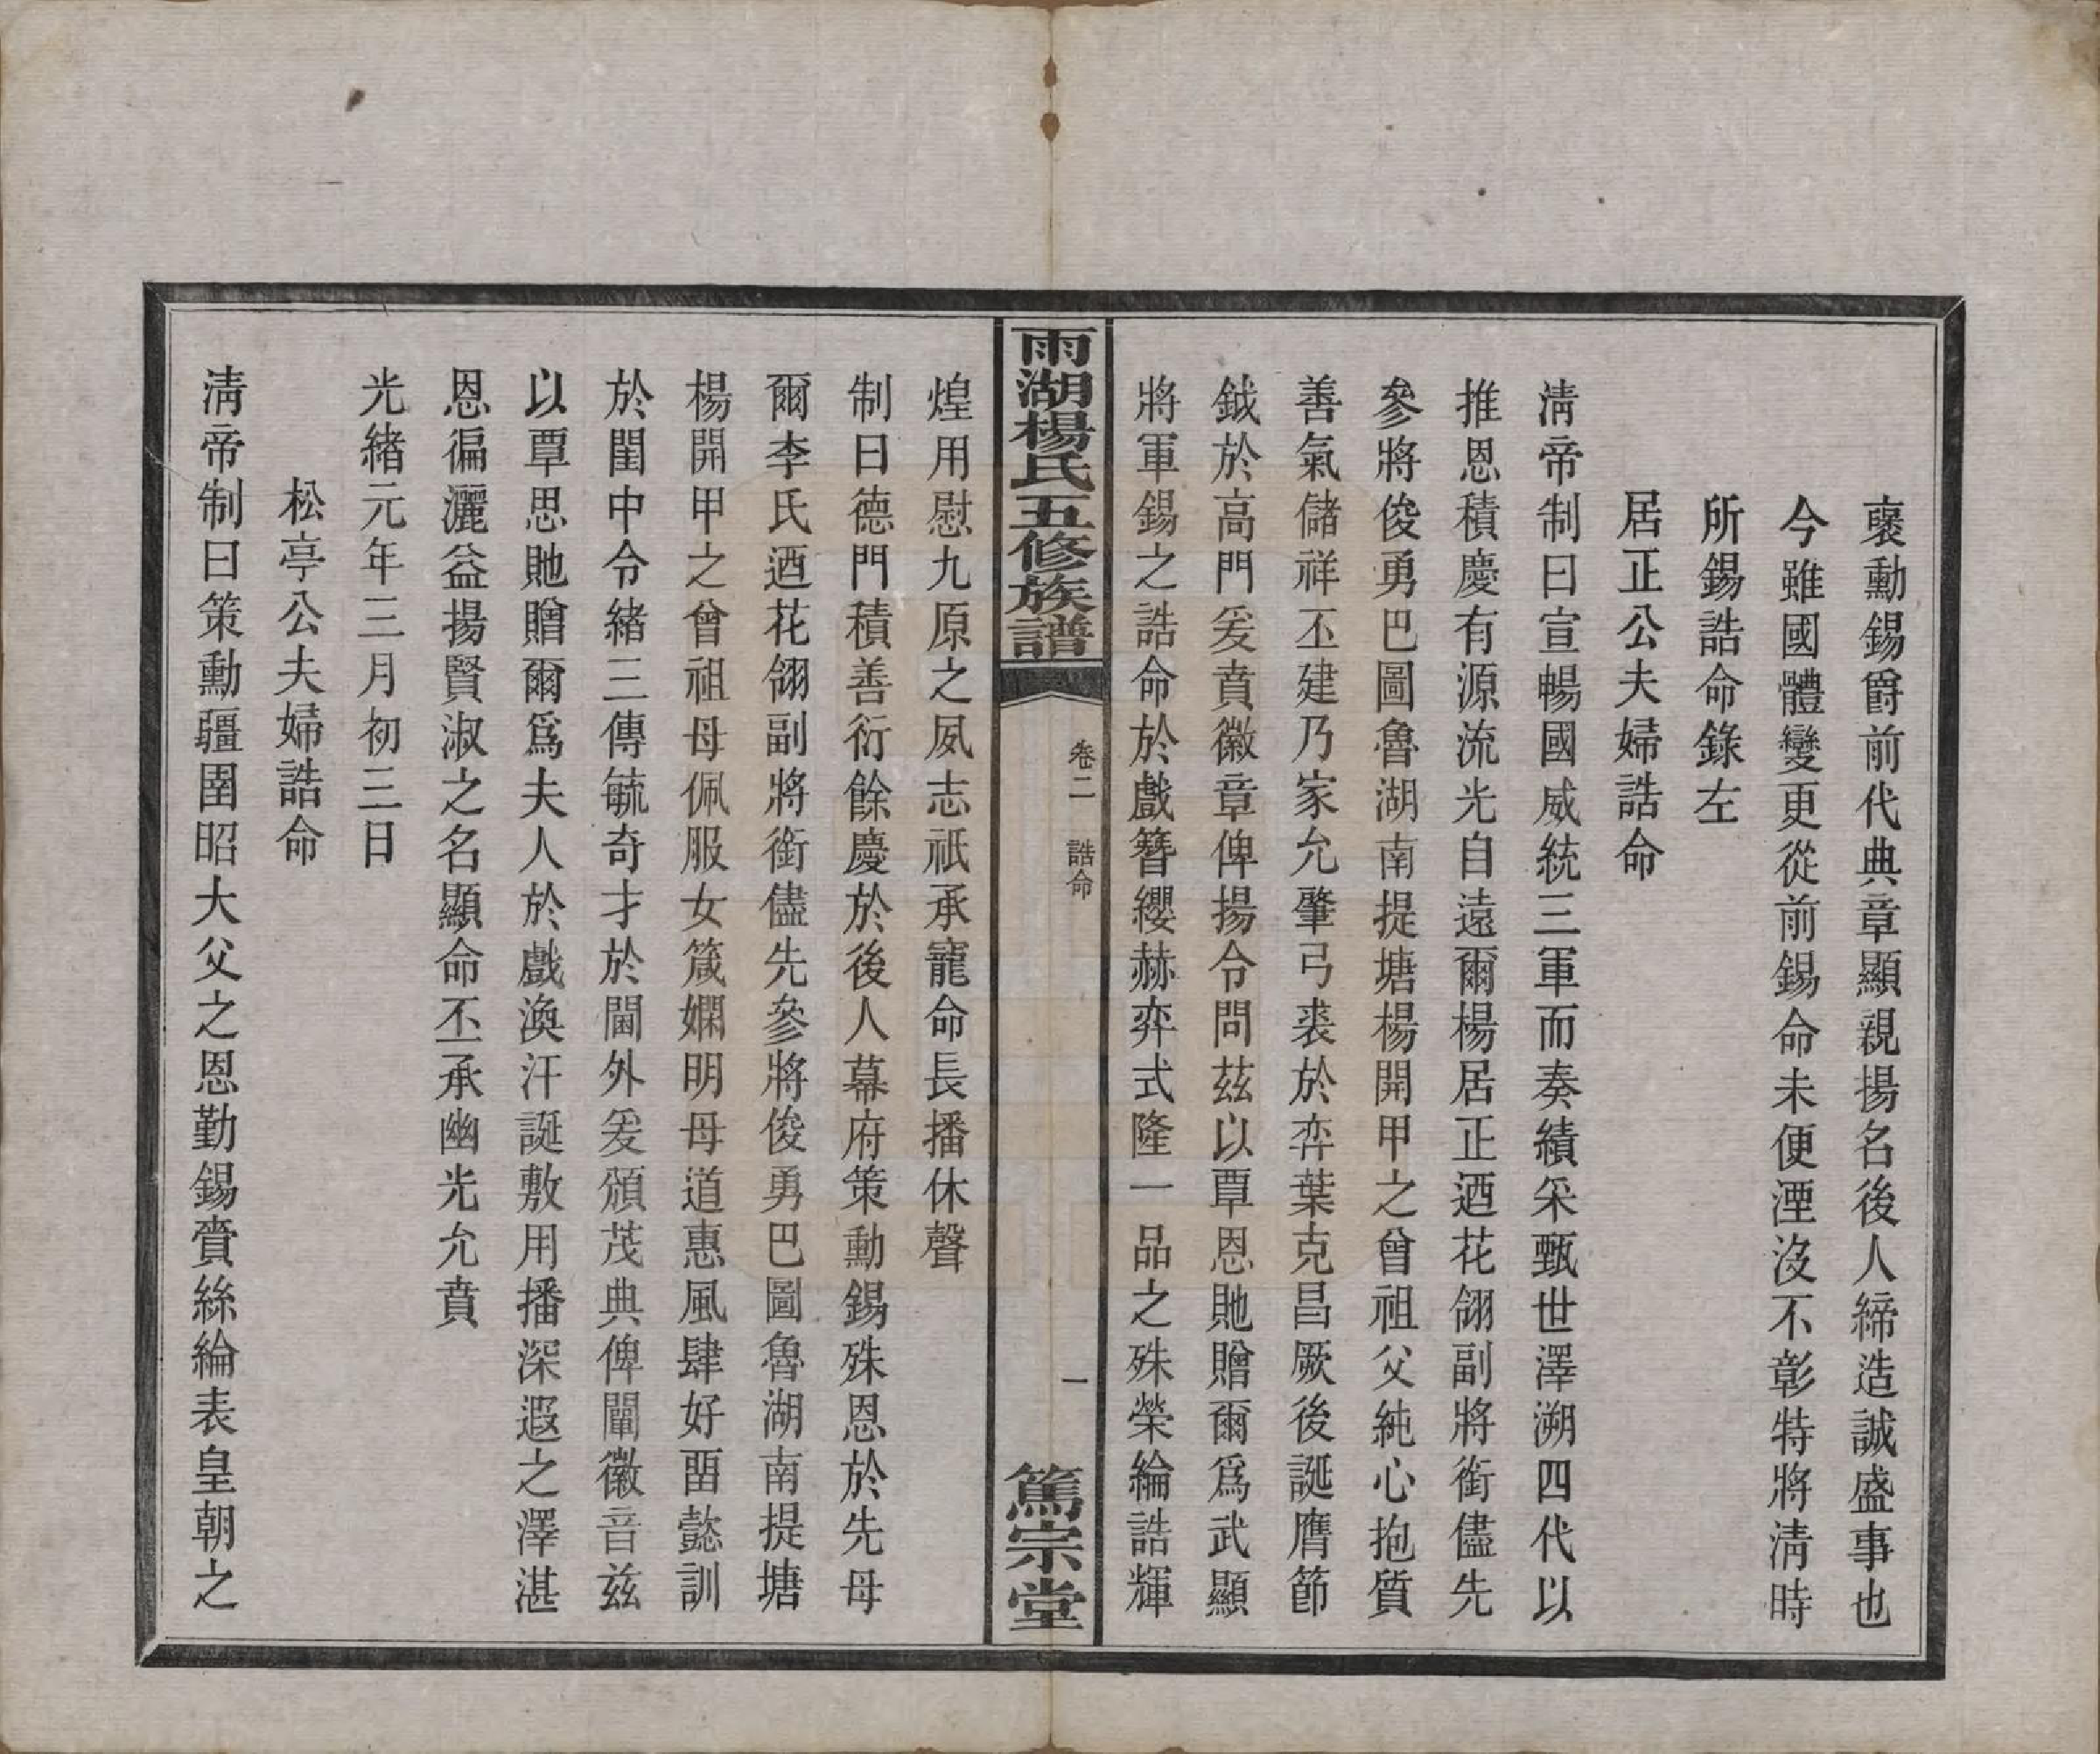 襃勳錫爵前代典章顯親揚名後人締造誠盛事也
今雖國體變更從前錫命未便湮沒不彰特將淸時
所錫誥命錄左
居正公夫婦誥命
淸帝制曰宣暢國威統三軍而奏績采甄世澤溯四代以
推恩積慶有源流光自遠爾楊居正迺花翎副將銜儘先
參將俊勇巴圖魯湖南提塘楊開甲之曾祖父純心抱質
善氣儲祥丕建乃家允肇弓裘於弈葉克昌厥後誕膺節
鉞於高門爰賁徽章俾揚令問茲以覃恩貤贈爾爲武顯
將軍錫之誥命於戲簪纓赫弈式隆一品之殊榮綸誥輝
雨湖楊氏五修族譜
卷二 誥命
一
篤宗堂
煌用慰九原之夙志祇承寵命長播休聲
制曰德門積善衍餘慶於後人幕府策勳錫殊恩於先母
爾李氏迺花翎副將銜儘先參將俊勇巴圖魯湖南提塘
楊開甲之曾祖母佩服女箴嫻明母道惠風肆好畱懿訓
於閨中令緒三傳毓奇才於閫外爰頒茂典俾闡徽音兹
以覃思貤贈爾爲夫人於戲渙汗誕敷用播深遐之澤湛
恩徧灑益揚賢淑之名顯命丕承幽光允賁
光緒元年三月初三日
松亭公夫婦誥命
淸帝制曰策勳疆圉昭大父之恩勤錫賚絲綸表皇朝之